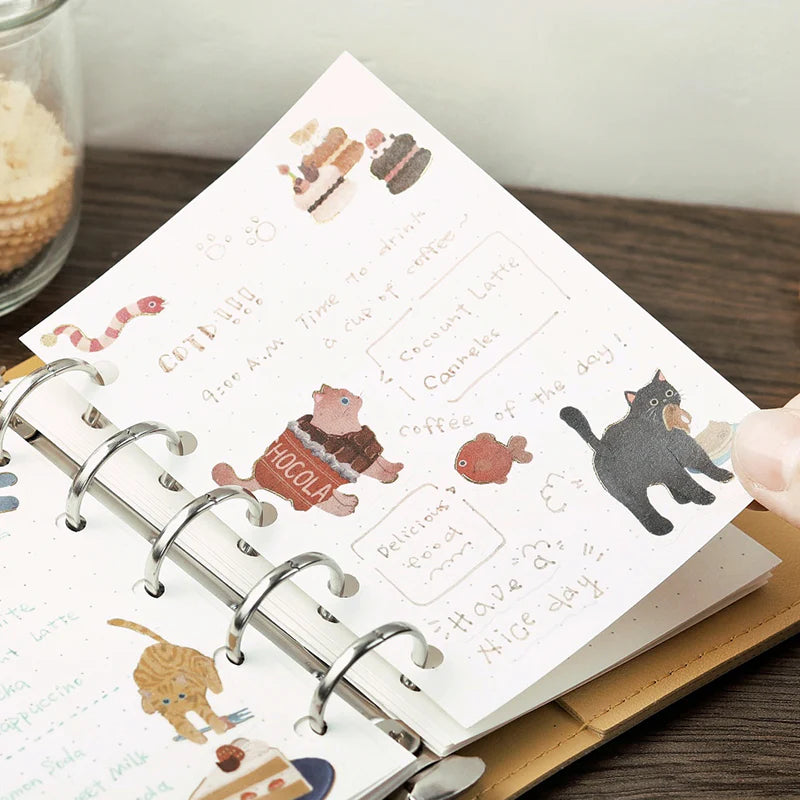 COTD!!!
9:00 A.M Time to drink
a cup of coffee~
Cocount Latte
Canneles
coffee of the day!
CHOCOLA
Delicious
food
Have a
Nice day
ite
nt Latte
appuccino
mon Soda
eet Milk
oda